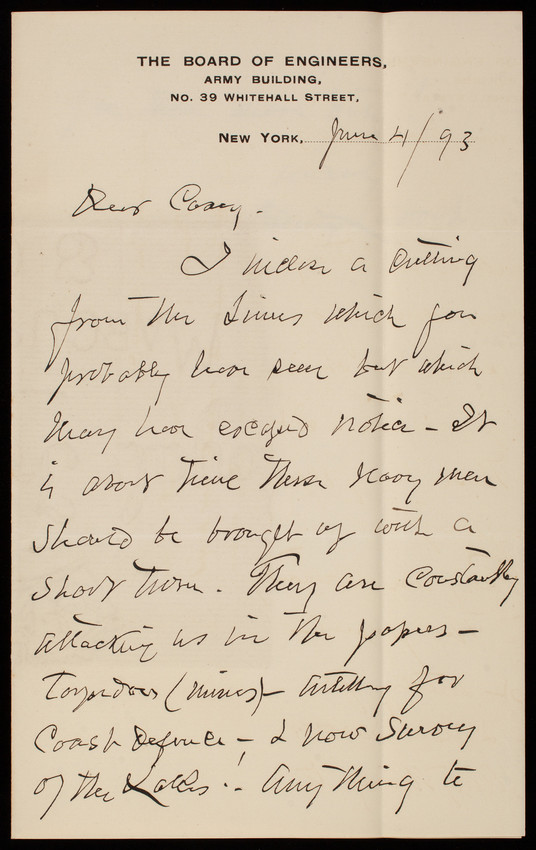 THE BOARD OF ENGINEERS,
ARMY BUILDING,
No. 39 WHITEHALL STREET,
NEW YORK, June 4/93
Dear Casey.
I inclose a cutting
from the Times which you
probably have seen but which
may have escaped notice - It
is about time these Navy men
should be brought up with a
short turn. They are constantly
attacking us in the papers -
Torpedoes (mines) - Artillery for
Coast Defence - & now Survey
of the Lakes! - Anything to